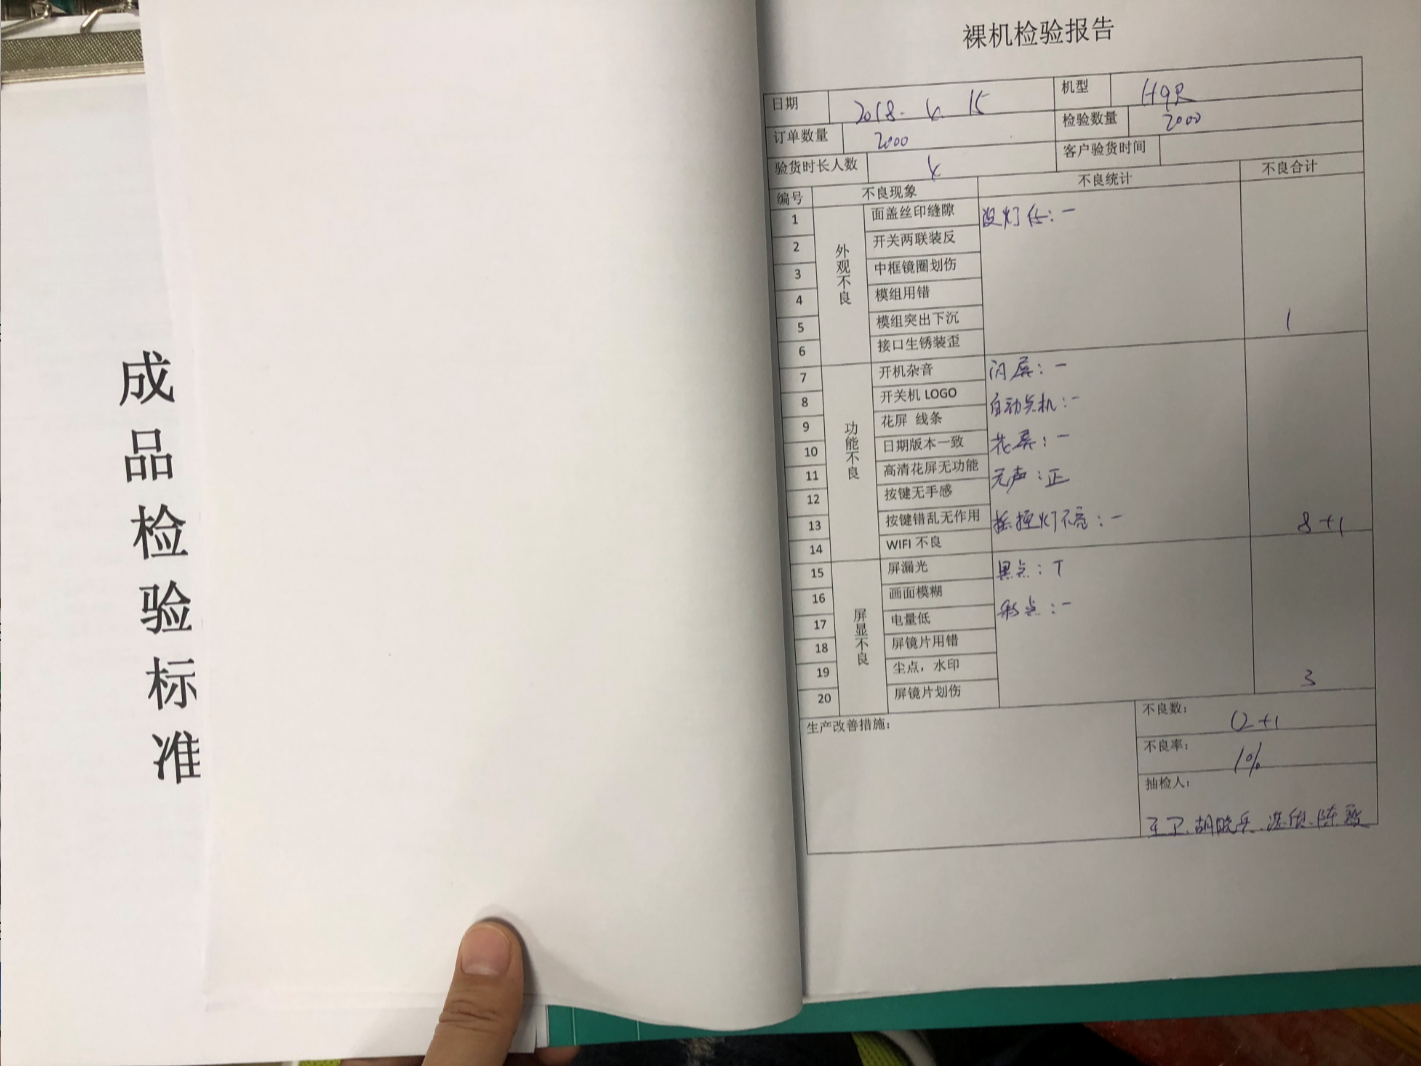 成品检验标准
裸机检验报告
日期 2018.4.15 机型 H9R
订单数量 2000 检验数量 2000
验货时长人数 4 客户验货时间
编号 不良现象 不良统计 不良合计
外观不良
1 面盖丝印缝隙
2 开关两联装反
3 中框镜圈划伤
4 模组用错
5 模组突出下沉
6 接口生锈装歪
没灯仁:一
1
功能不良
7 开机杂音
8 开关机 LOGO
9 花屏 线条
10 日期版本一致
11 高清花屏无功能
12 按键无手感
13 按键错乱无作用
14 WIFI 不良
闪屏:一
自动关机:一
花屏:一
无声:正
摇控灯不亮:一
8+1
屏显不良
15 屏漏光
16 画面模糊
17 电量低
18 屏镜片用错
19 尘点，水印
20 屏镜片划伤
黑点:T
彩点:一
3
生产改善措施：
不良数： 12+1
不良率： 1%
抽检人：
王卫.胡晓兵.